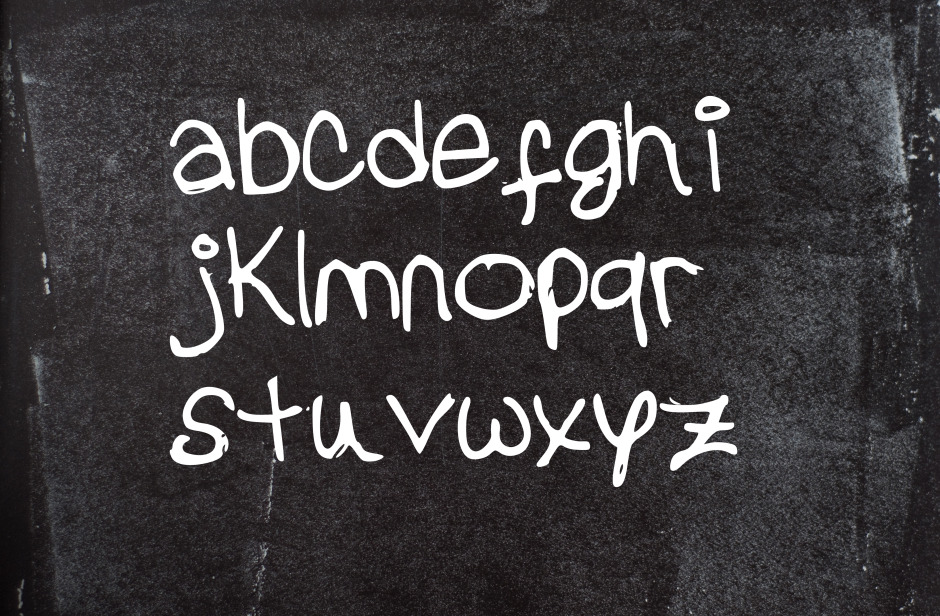 abcdefghi
jklmnopqr
stuvwxyz